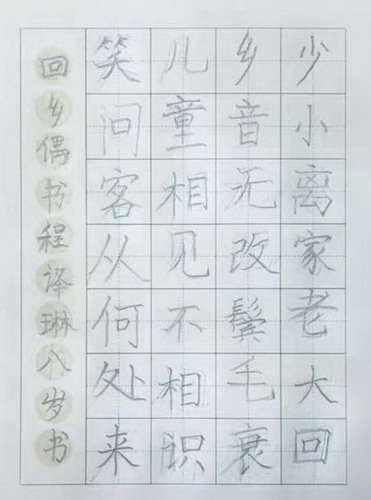 少小离家老大回
乡音无改鬓毛衰
儿童相见不相识
笑问客从何处来
回乡偶书程译琳八岁书